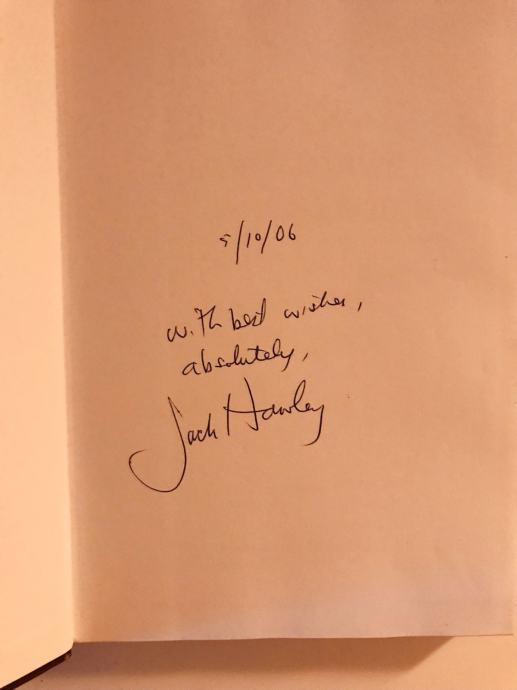 5/10/06
with best wishes,
absolutely,
Jack Hawley